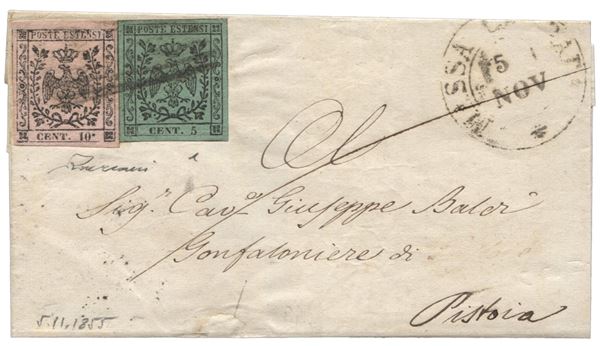 POSTE ESTENSI
CENT. 10
POSTE ESTENSI
CENT. 5
5
NOV
Al
Sig.r Cav.r Giuseppe Baldi
Gonfaloniere di
Pistoia
5.11.1855